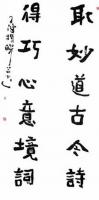 取妙道古今詩
得巧心意境詞